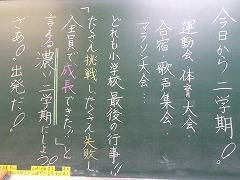 今日から二学期!。
運動会、体育大会、
合宿、歌声集会、
マラソン大会…
どれも小学校最後の行事!!
「たくさん挑戦し、たくさん失敗し、
全員で成長できた!!」と
言える濃い二学期にしよう。
さあ!出発だ!